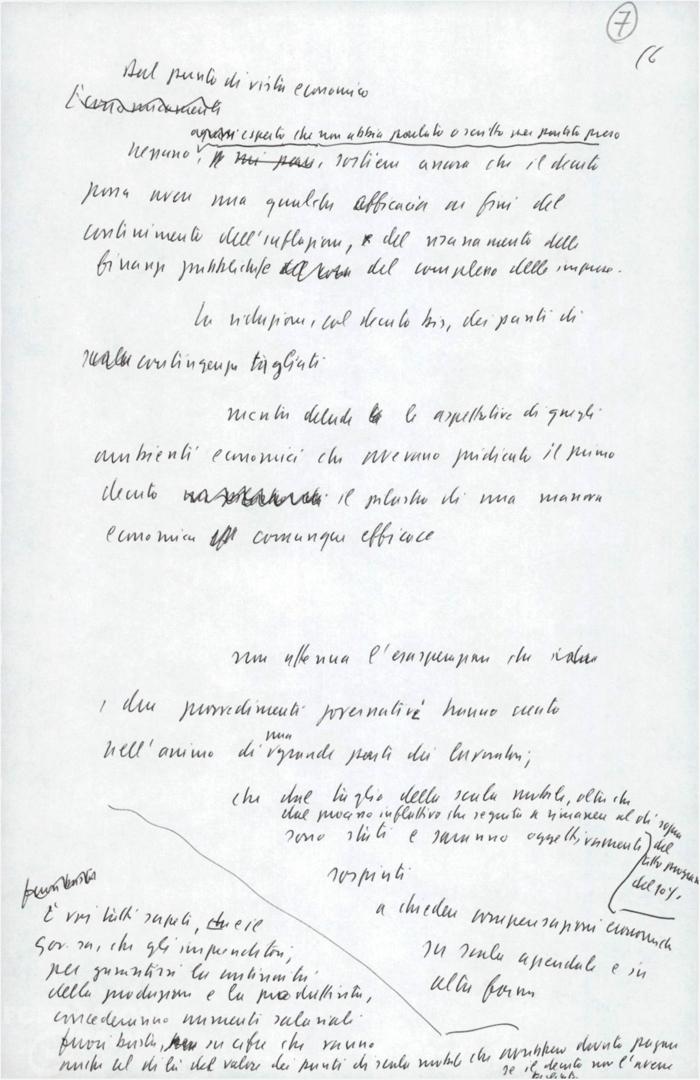 7
16
Dal punto di vista economico
Economicamente
esperto che non abbia parlato o scritto per partito preso
Nessuno, sostiene ancora che il decreto
possa avere una qualche efficacia ai fini del
contenimento dell'inflazione, del risanamento delle
finanze pubbliche e del complesso delle imprese.
La riduzione, col decreto bis, dei punti di
scala contingenza tagliati
mentre delude le aspettative di quegli
ambienti economici che avevano giudicato il primo
decreto il pilastro di una manovra
economica comunque efficace
non attenua l'esasperazione che
i due provvedimenti governativi hanno creato
una
nell'animo di grande parte dei lavoratori;
che dal taglio della scala mobile, oltre che
dal processo inflattivo che seguita a rimanere al di sopra
del
tetto programmato
del 10%.
sono stati e saranno oggettivamente
sospinti
a chiedere compensazioni economiche
su scala aziendale e in
altre forme
fuori busta
E voi tutti sapete, e il
Gov. sa, che gli imprenditori,
per garantirsi la continuità
della produzione e la produttività,
concederanno aumenti salariali
fuori busta, su cifre che vanno
anche al di là del valore dei punti di scala mobile che avrebbero dovuto pagare
se il decreto non l'avesse